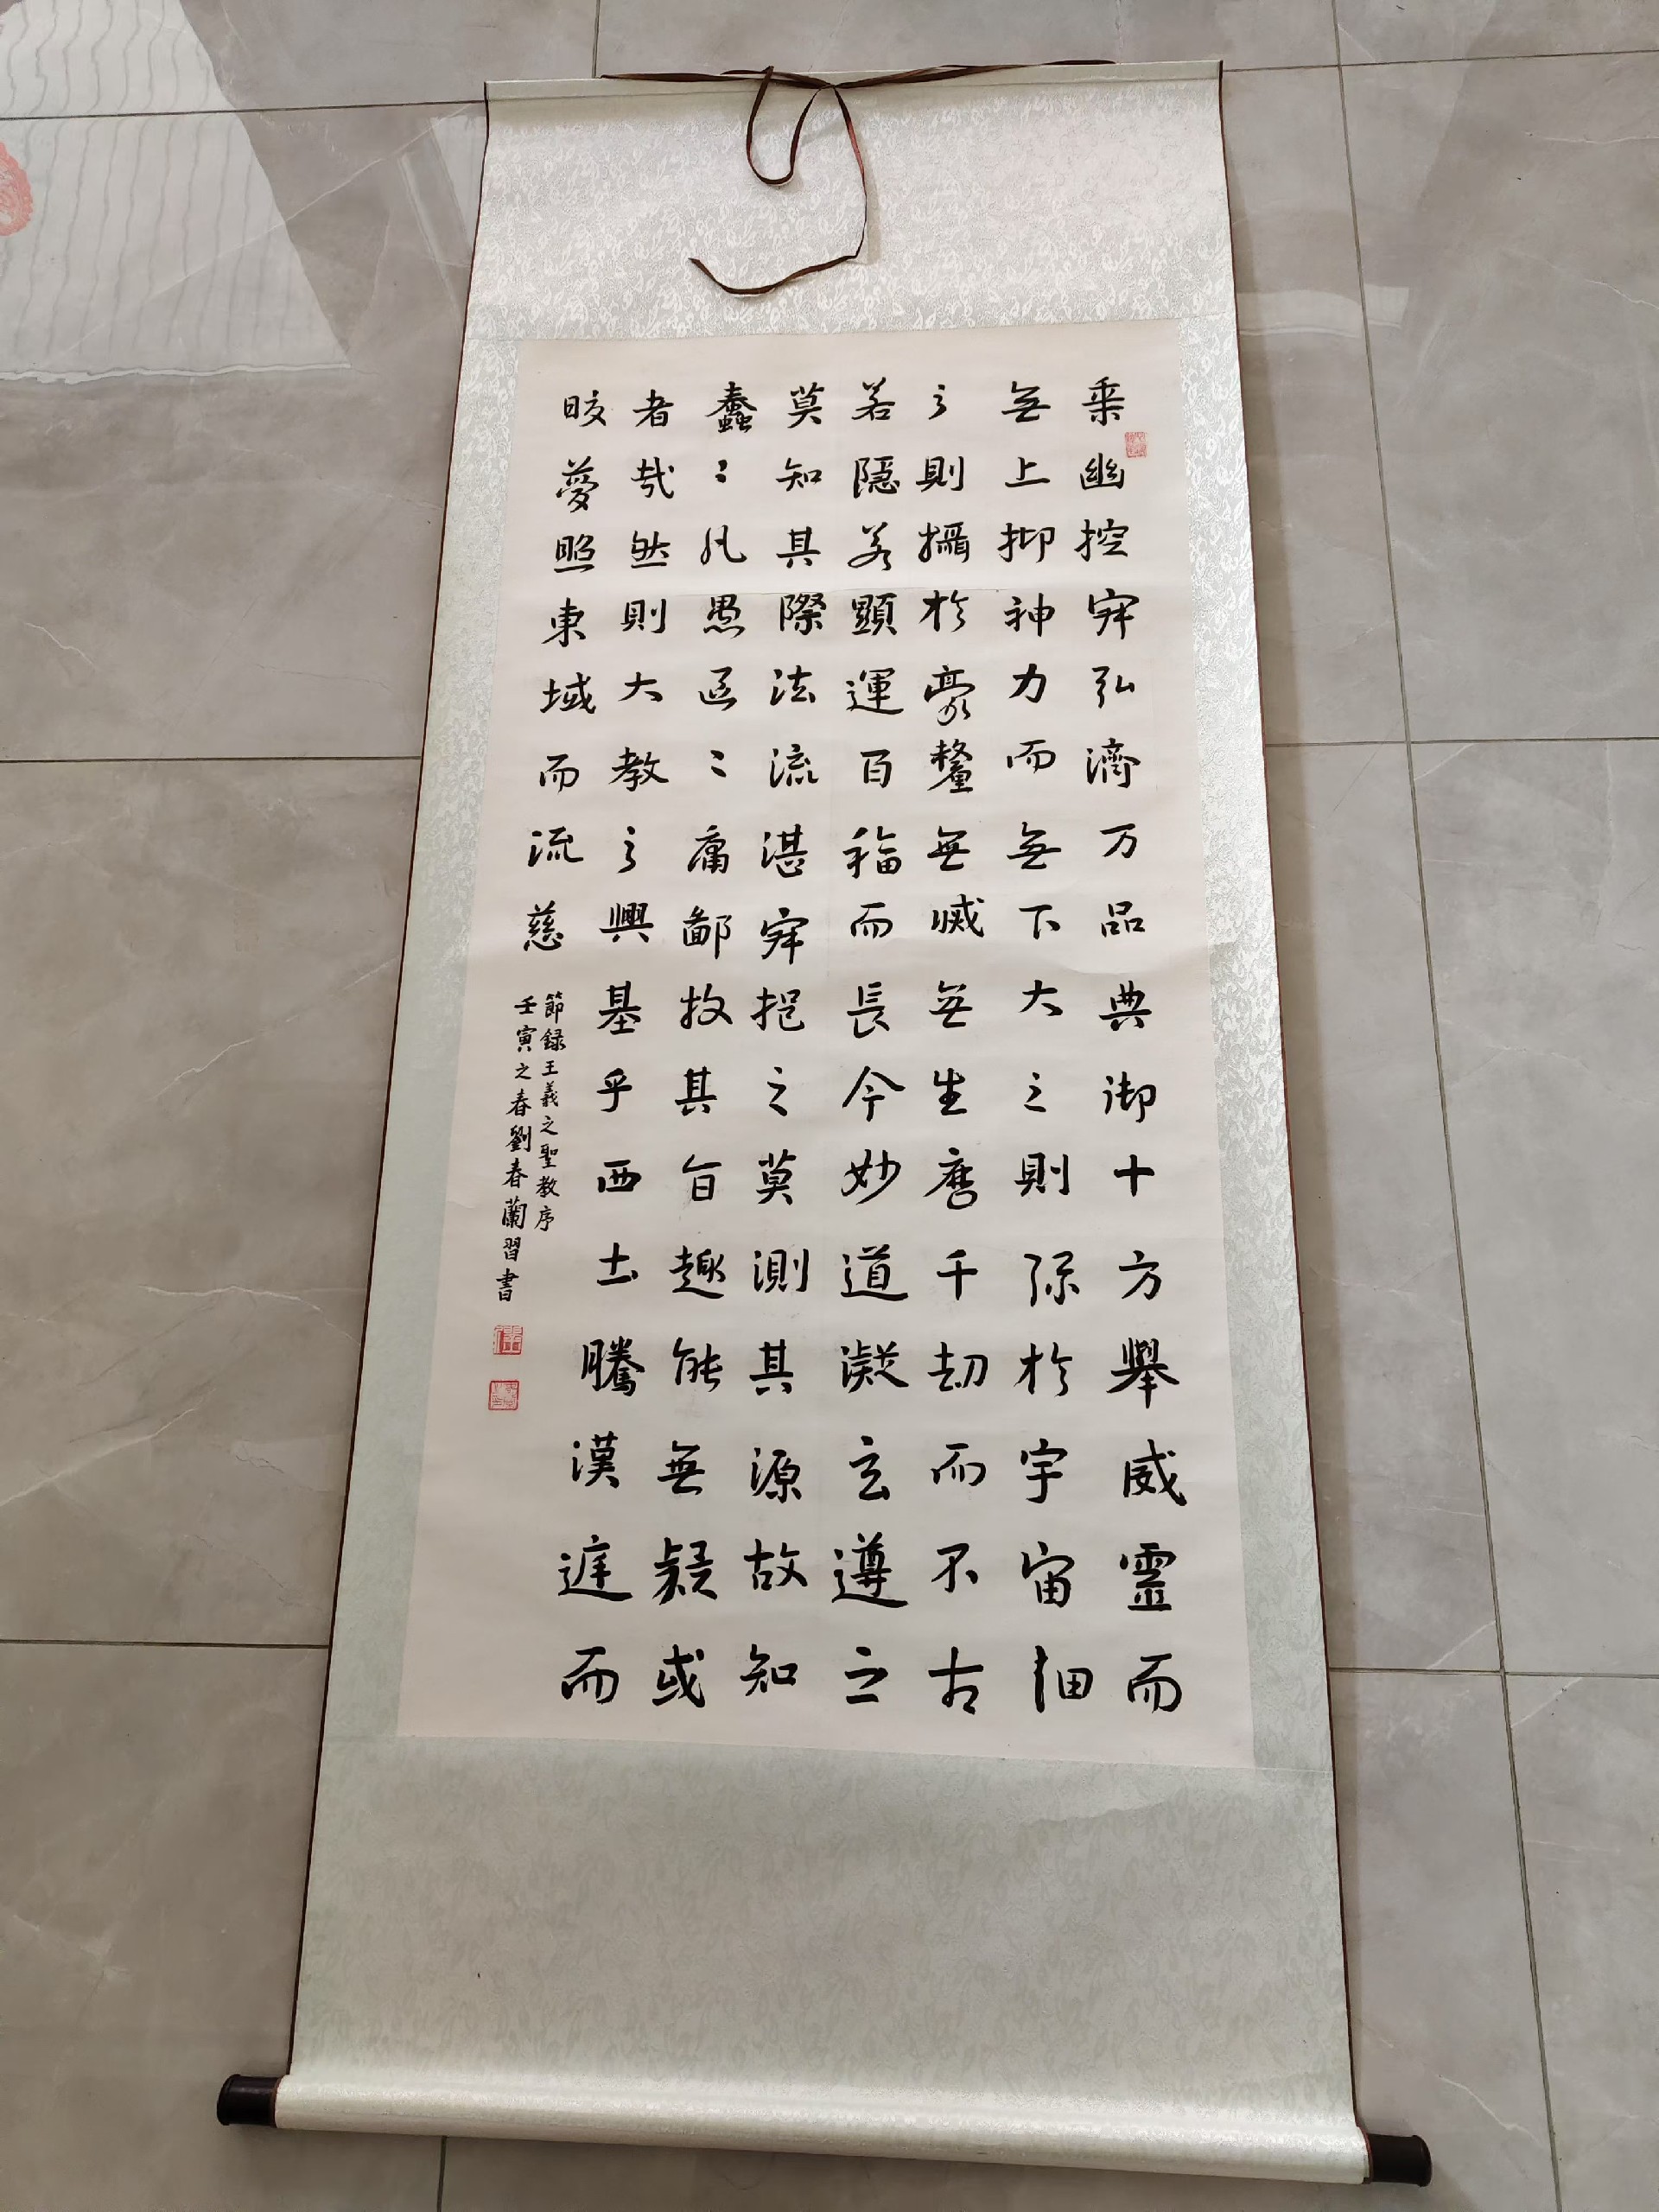 乘幽控寂弘濟万品典御十方舉威靈而
無上抑神力而無下大之則弥於宇宙細
之則攝於豪釐無滅無生歷千劫而不古
若隱若顯運百福而長今妙道凝玄遵之
莫知其際法流湛寂挹之莫測其源故知
蠢〻凡愚區〻庸鄙投其旨趣能無疑或
者哉然則大教之興基乎西土騰漢庭而
皎夢照東域而流慈
節録王羲之聖教序
壬寅之春劉春蘭習書